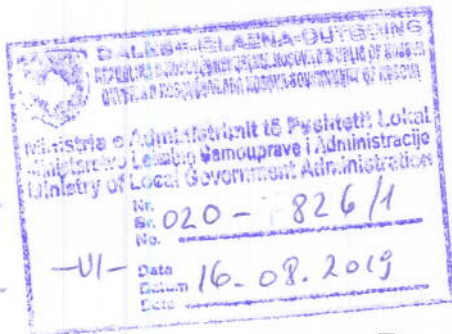 DALËSE-IZLAZNA-OUTGOING
Ministria e Administrimit të Pushtetit Lokal
Ministarstvo Lokalne Samouprave i Administracije
Ministry of Local Government Administration
Nr.
Br. 020 - 826/1
No.
-VI- Data
Datum 16-08.2019
Date